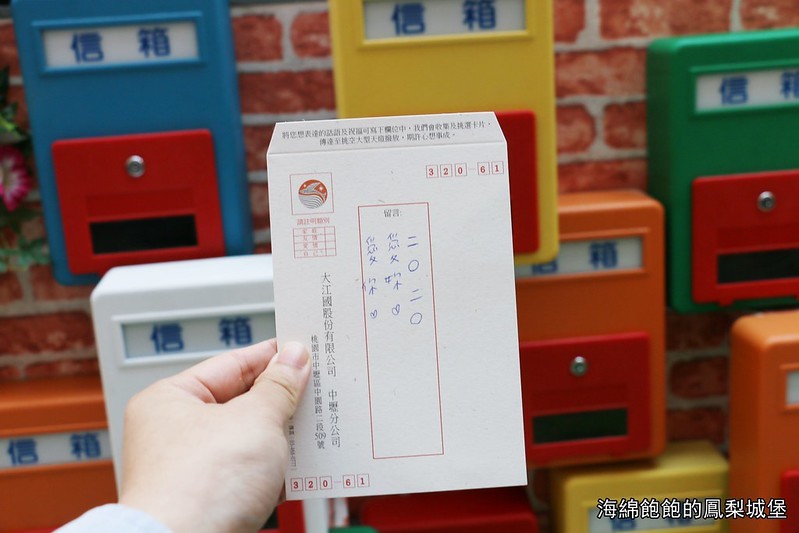 信箱
信箱
信箱
將您想表達的話語及祝福可寫下欄位中，我們會收集及挑選卡片，
傳達至桃空大型天燈線放，期許心想事成。
320-61
請註明類別
留言:
二〇二〇
愛妳
愛你
大江國股份有限公司 中壢分公司
桃園市中壢區中園路二段509號
320-61
信箱
信箱
信箱
信箱
海綿飽飽的鳳梨城堡